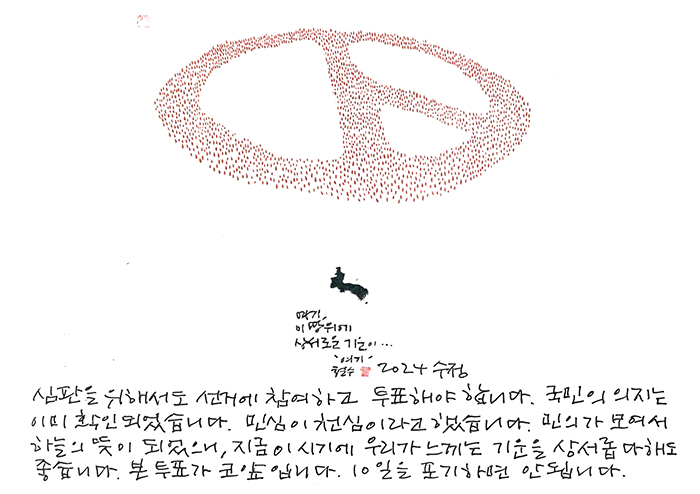 여기,
이 땅위에
상서로운 기운이...
'여기'
철수 2024 수정
심판을 위해서도 선거에 참여하고 투표해야 합니다. 국민의 의지는
이미 확인되었습니다. 민심이 천심이라고 했습니다. 민의가 모여서
하늘의 뜻이 되었으니, 지금 이 시기에 우리가 느끼는 기운을 상서롭다 해도
좋습니다. 본 투표가 코앞입니다. 10일을 포기하면 안됩니다.